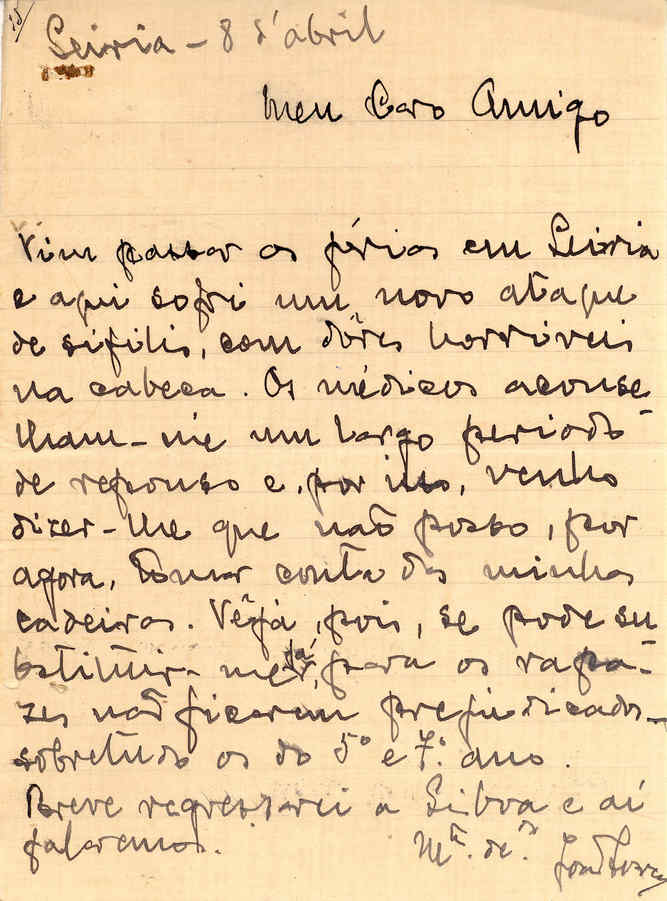 Leiria - 8 d'abril
Meu Caro Amigo
Vim passar as férias em Leiria
e aqui sofri um novo ataque
de sífilis, com dôres horríveis
na cabeça. Os médicos aconse
lham-me um largo periodo
de repouso e, por isso, venho
dizer-lhe que não posso, por
agora, tomar conta das minhas
cadeiras. Vêja, pois, se pode su
bstituir-me já, para os rapa-
zes não ficarem prejudicados
sobretudo os do 5º e 7º ano.
Breve regressarei a Lisboa e aí
falaremos.
Mtº. dº.